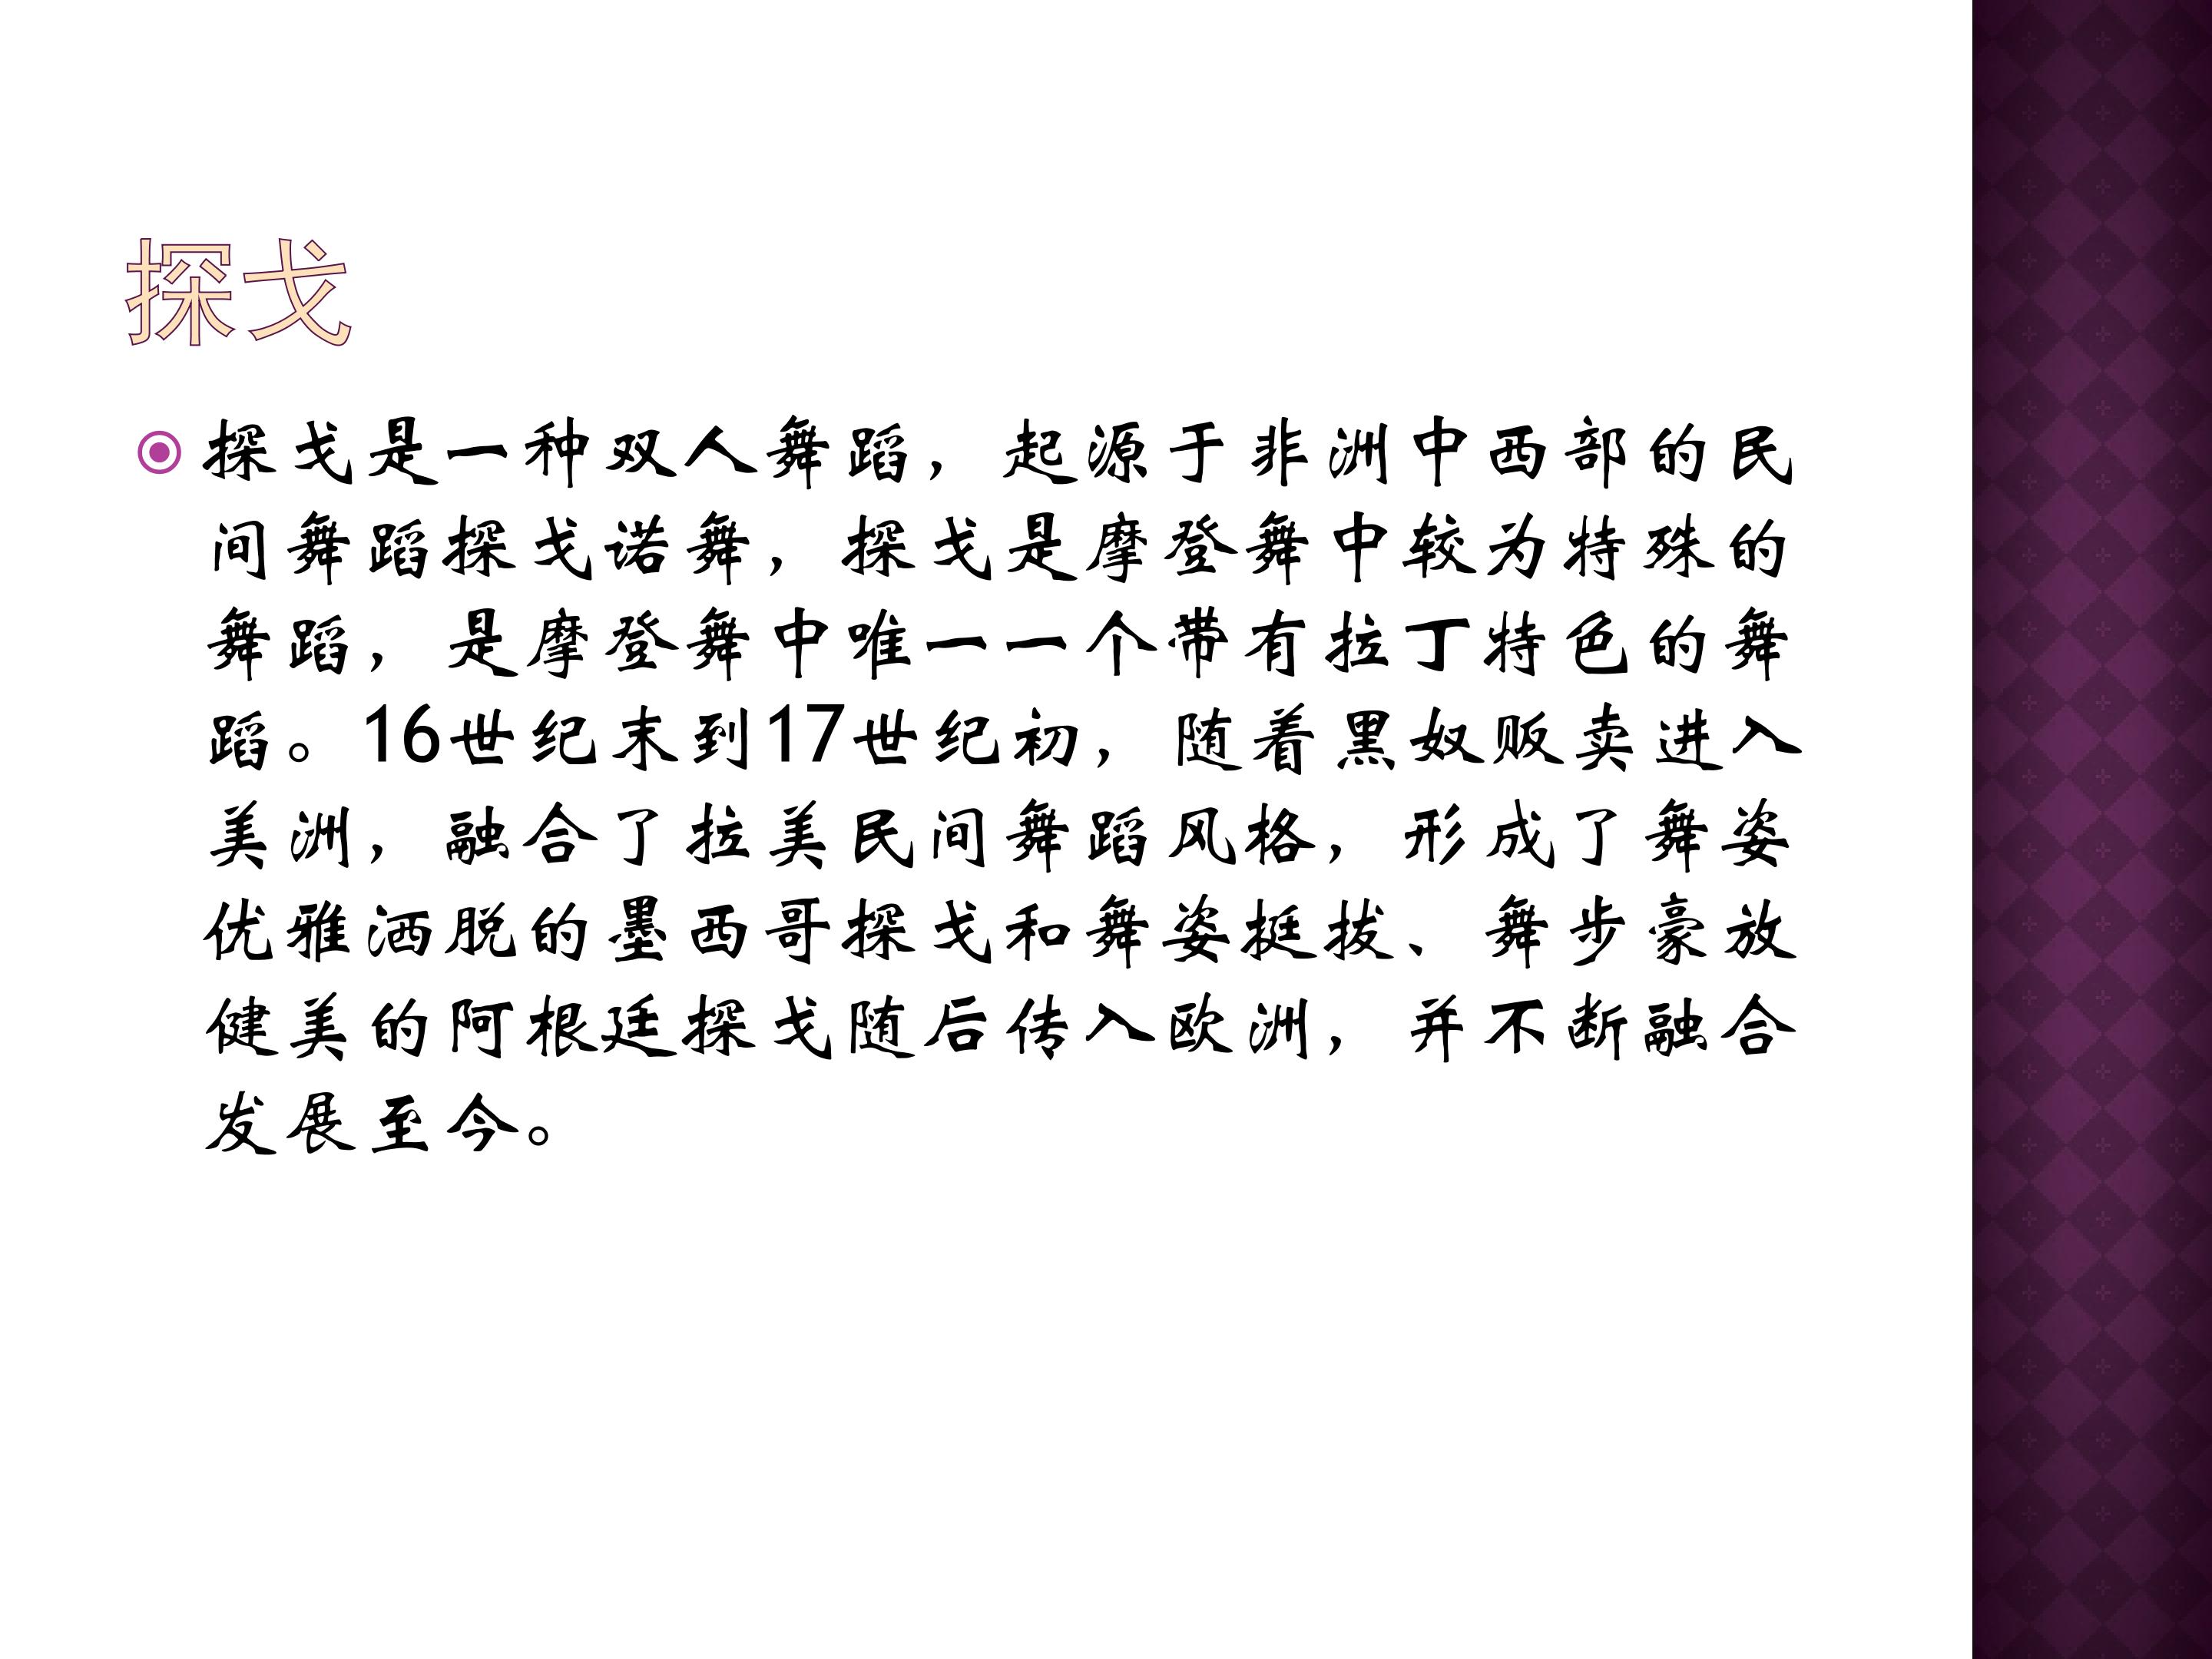 探戈
探戈是一种双人舞蹈，起源于非洲中西部的民
间舞蹈探戈诺舞，探戈是摩登舞中较为特殊的
舞蹈，是摩登舞中唯一一个带有拉丁特色的舞
蹈。16世纪末到17世纪初，随着黑奴贩卖进入
美洲，融合了拉美民间舞蹈风格，形成了舞姿
优雅洒脱的墨西哥探戈和舞姿挺拔、舞步豪放
健美的阿根廷探戈随后传入欧洲，并不断融合
发展至今。